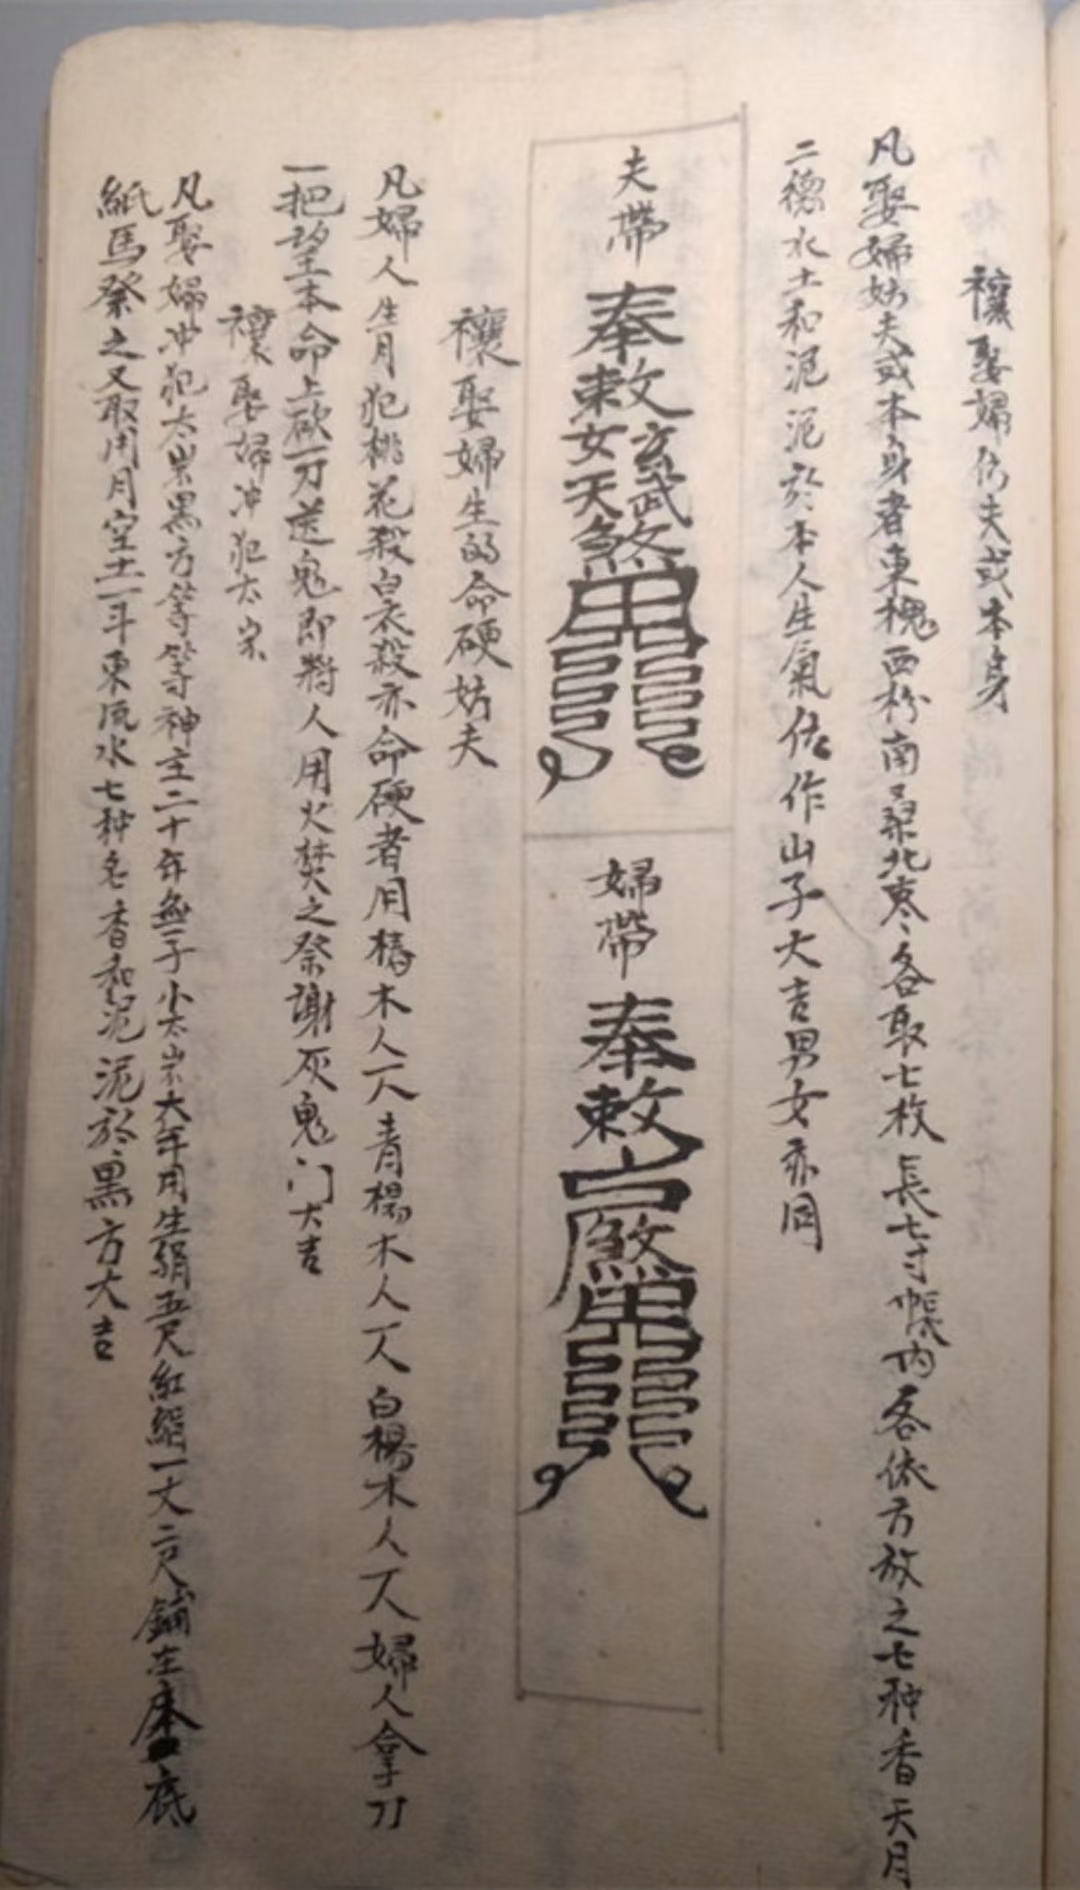 禳娶婦伤夫或本身
凡娶婦妨夫或本身者東槐西枌南桑北棗各取七枚長七寸帳内各依方放之七种香天月
二德水土和泥泥於本人生氣位作山子大吉男女亦同
夫帶
奉敕玄武女天煞
婦帶
奉敕
禳娶婦生的命硬妨夫
凡婦人生月犯桃花殺白衣殺亦命硬者用椿木人一人青楊木人一人白楊木人一人婦人拿刀
一把望本命上砍一刀送鬼即將人用火焚之祭謝灰鬼门大吉
禳娶婦冲犯太
凡娶婦冲犯太黑方等等神主二十年無子小太大年用生絹五尺紅絹一丈二尺鋪在床底
紙馬祭之又取用月空土一斗東流水七种名香和泥泥於黒方大吉